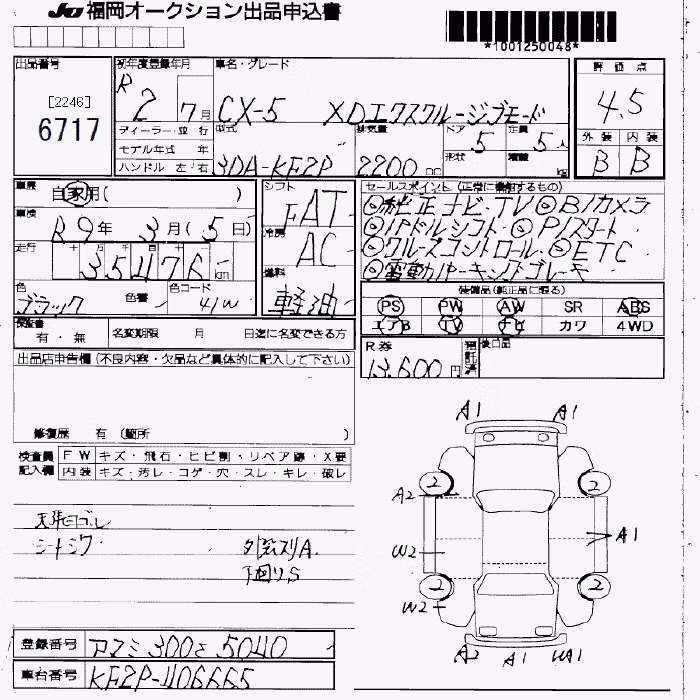 JU 福岡オークション出品申込書
*1001250048*
出品番号 初年度登録年月 車名・グレード 評価点
[2246]
6717
R2 7月 CX-5 XDエクスクルーシブモード 4.5
ディーラー・並行 型式 排気量 ドア 5 定員 5人 外装 内装
モデル年式 年 形状 積載 kg B B
ハンドル 左・右 3DA-KF2P 2200 CC
車歴 自家用( ) シフト FAT セールスポイント (正常に機能するもの)
◎純正ナビ・TV ◎B/カメラ
車検 R9年 3月(5日) ◎I/Pドルシフト・◎P/スタート
走行 十万千百十 35476 km 冷房 AC ◎クルーズコントロール・◎ETC
◎電動パーキングブレーキ
色 ブラック 色番 色コード 41W 燃料 軽油 装備品 (純正品に限る)
PS PW AW SR ABS
エアB TV ナビ カワ 4WD
検査書 有・無 名変期限 月 日迄に名変できる方
R券 13,600円 預託済 後日品
出品店申告欄 (不良内容・欠品など具体的に記入して下さい)
修復歴 有 (箇所 )
検査員 FW キズ・飛石・ヒビ割・リペア跡・X要
記入欄 内装 キズ・汚レ・コゲ・穴・スレ・キレ・破レ
A1 A1
2 2
A2
A1
W2
2 2
W2
A2 A1 WA1
天張ヨゴレ
シートシワ
外装スリA
下回りS
登録番号 300 5040
車台番号 KF2P-406665